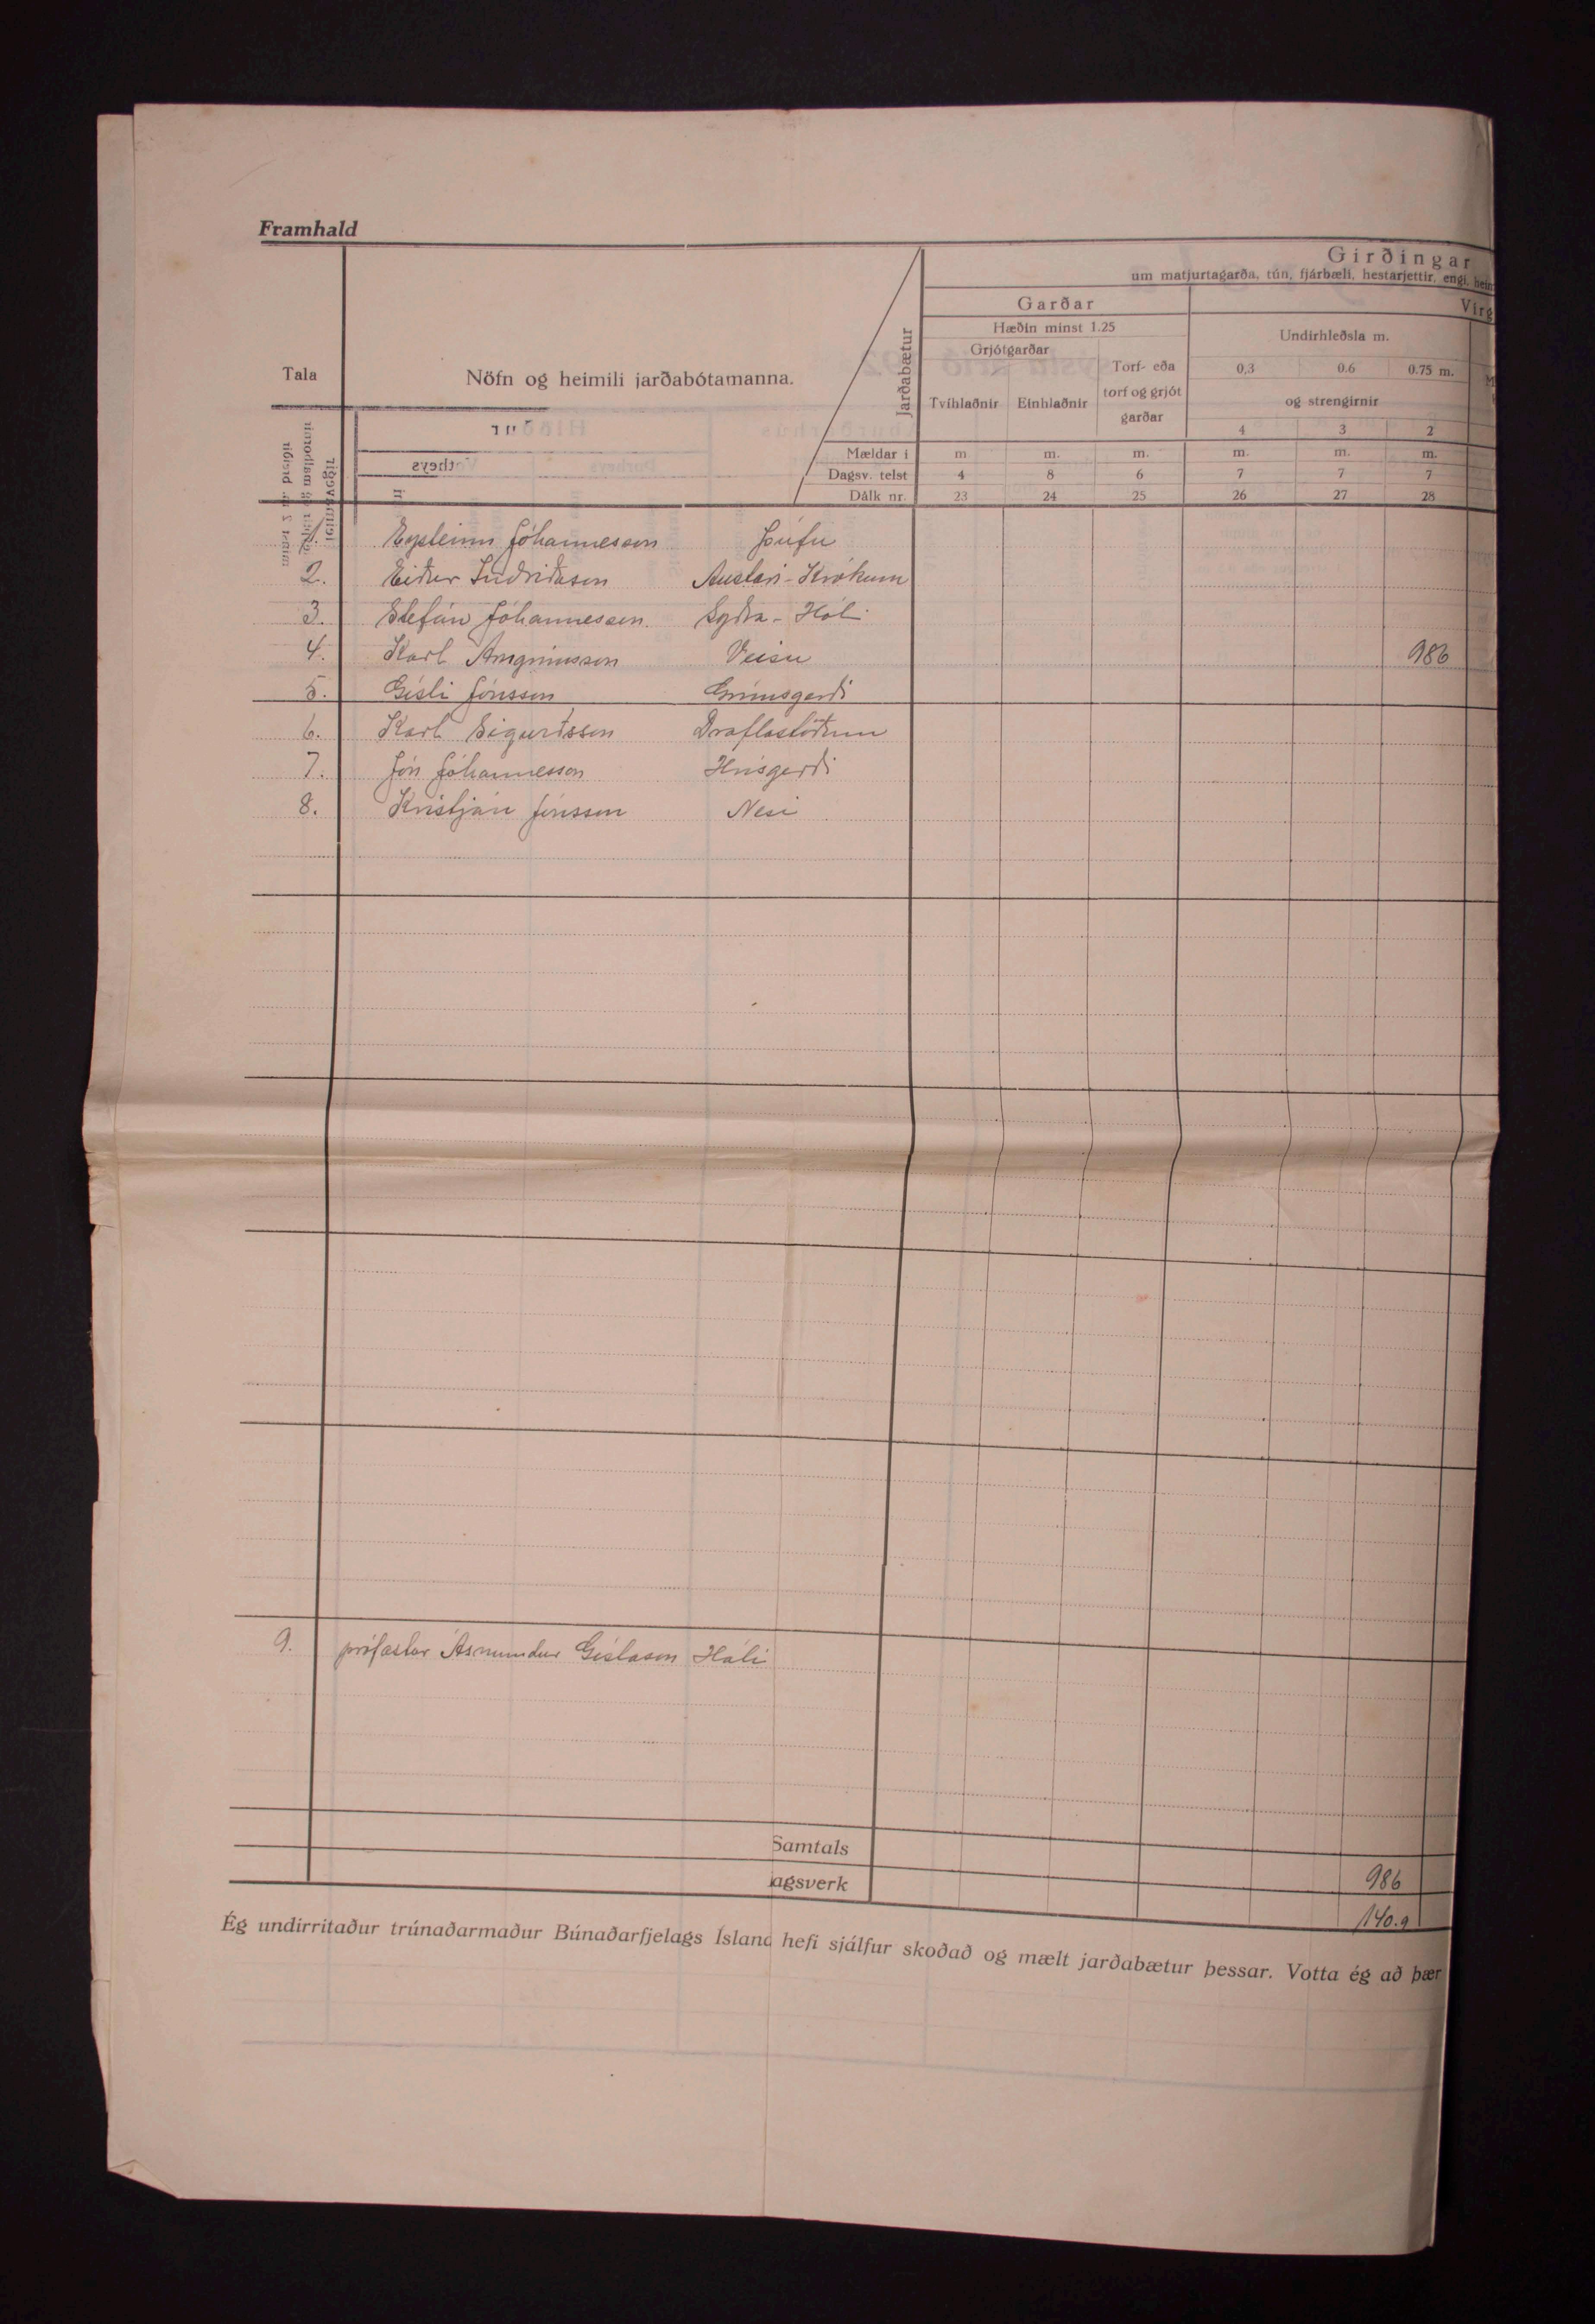 Framhald
Girðingar
um matjurtagarða, tún, fjárbæli, hestarjettir, engi, heim
Garðar
Virg
Hæðin minst 1.25
Undirhleðsla m.
Grjótgarðar
Torf- eða
torf og grjót
garðar
0,3 0.6 0.75 m.
Tala
Nöfn og heimili jarðabótamanna.
Jarðabætur
Tvíhlaðnir Einhlaðnir
og strengirnir
4 3 2
Mældar í m m. m. m. m. m.
Dagsv. telst 4 8 6 7 7 7
Dálk nr. 23 24 25 26 27 28
1. Eysteinn Jóhannesson Þúfu
2. Eiður Indriðason Austari-Krókum
3. Stefán Jóhannesson Syðra-Hóli
4. Karl Arngrímsson Veisu 986
5. Gísli Jónsson Grímsgerði
6. Karl Sigurðsson Draflastöðum
7. Jón Jóhannesson Hrísgerði
8. Kristján Jónsson Nesi
9. prófastur Ásmundur Gíslason Hálsi
Samtals 986
agsverk 140.9
Ég undirritaður trúnaðarmaður Búnaðarfjelags Ísland hefi sjálfur skoðað og mælt jarðabætur þessar. Votta ég að þær